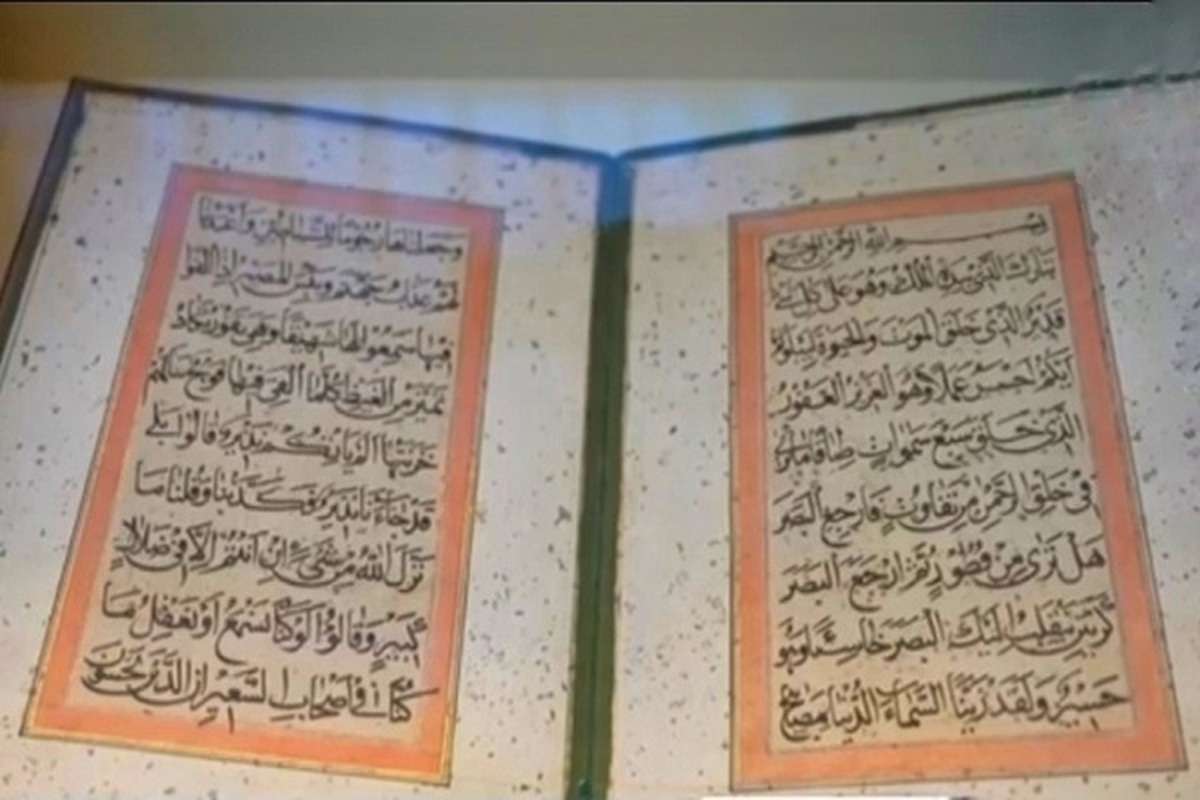 بسم الله الرحمن الرحيم
تبارك الذى بيده الملك وهو على كل شئ
قدير الذى خلق الموت والحيوة ليبلوكم
ايكم احسن عملا وهو العزيز الغفور
الذى خلق سبع سموات طباقا ما ترى
فى خلق الرحمن من تفاوت فارجع البصر
هل ترى من فطور ثم ارجع البصر
كرتين ينقلب اليك البصر خاسئا وهو
حسير ولقد زينا السماء الدنيا بمصابيح
وجعلناها رجوما للشياطين واعتدنا
لهم عذاب جهنم وبئس المصير اذا القوا
فيها سمعوا لها شهيقا وهى تفور تكاد
تميز من الغيظ كلما القى فيها فوج سالهم
خزنتها الم ياتكم نذير قالوا بلى
قد جاءنا نذير فكذبنا وقلنا ما
نزل الله من شئ ان انتم الا فى ضلال
كبير وقالوا لو كنا نسمع او نعقل ما
كنا فى اصحاب السعير ان الذين يخشون